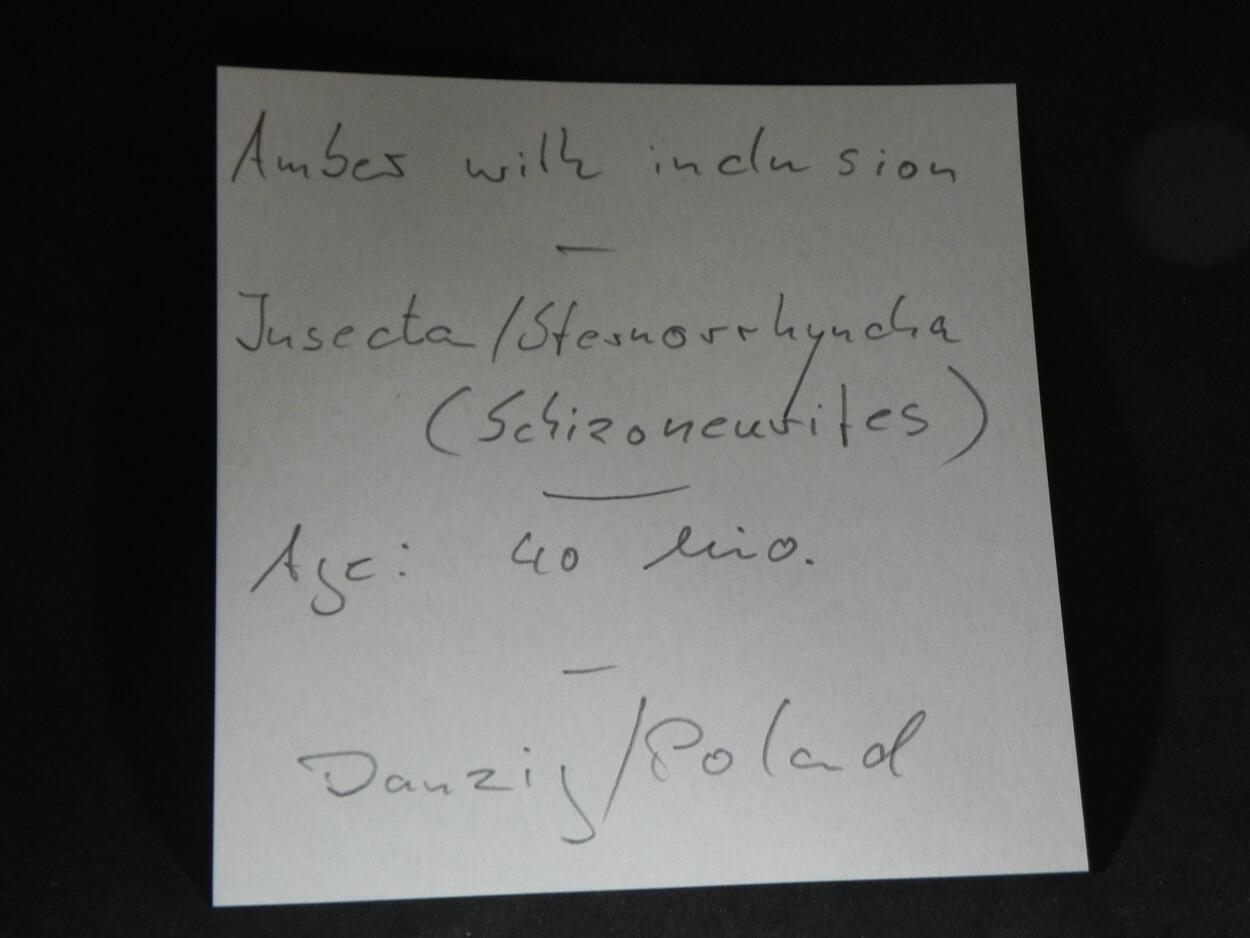 Amber with inclusion
—
Insecta/Sternorrhyncha
(Schizoneurites)
—
Age: 40 Mio.
—
Danzig/Poland